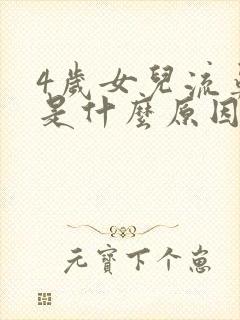 4歲女兒流
是什麼原因
元寶下个崽